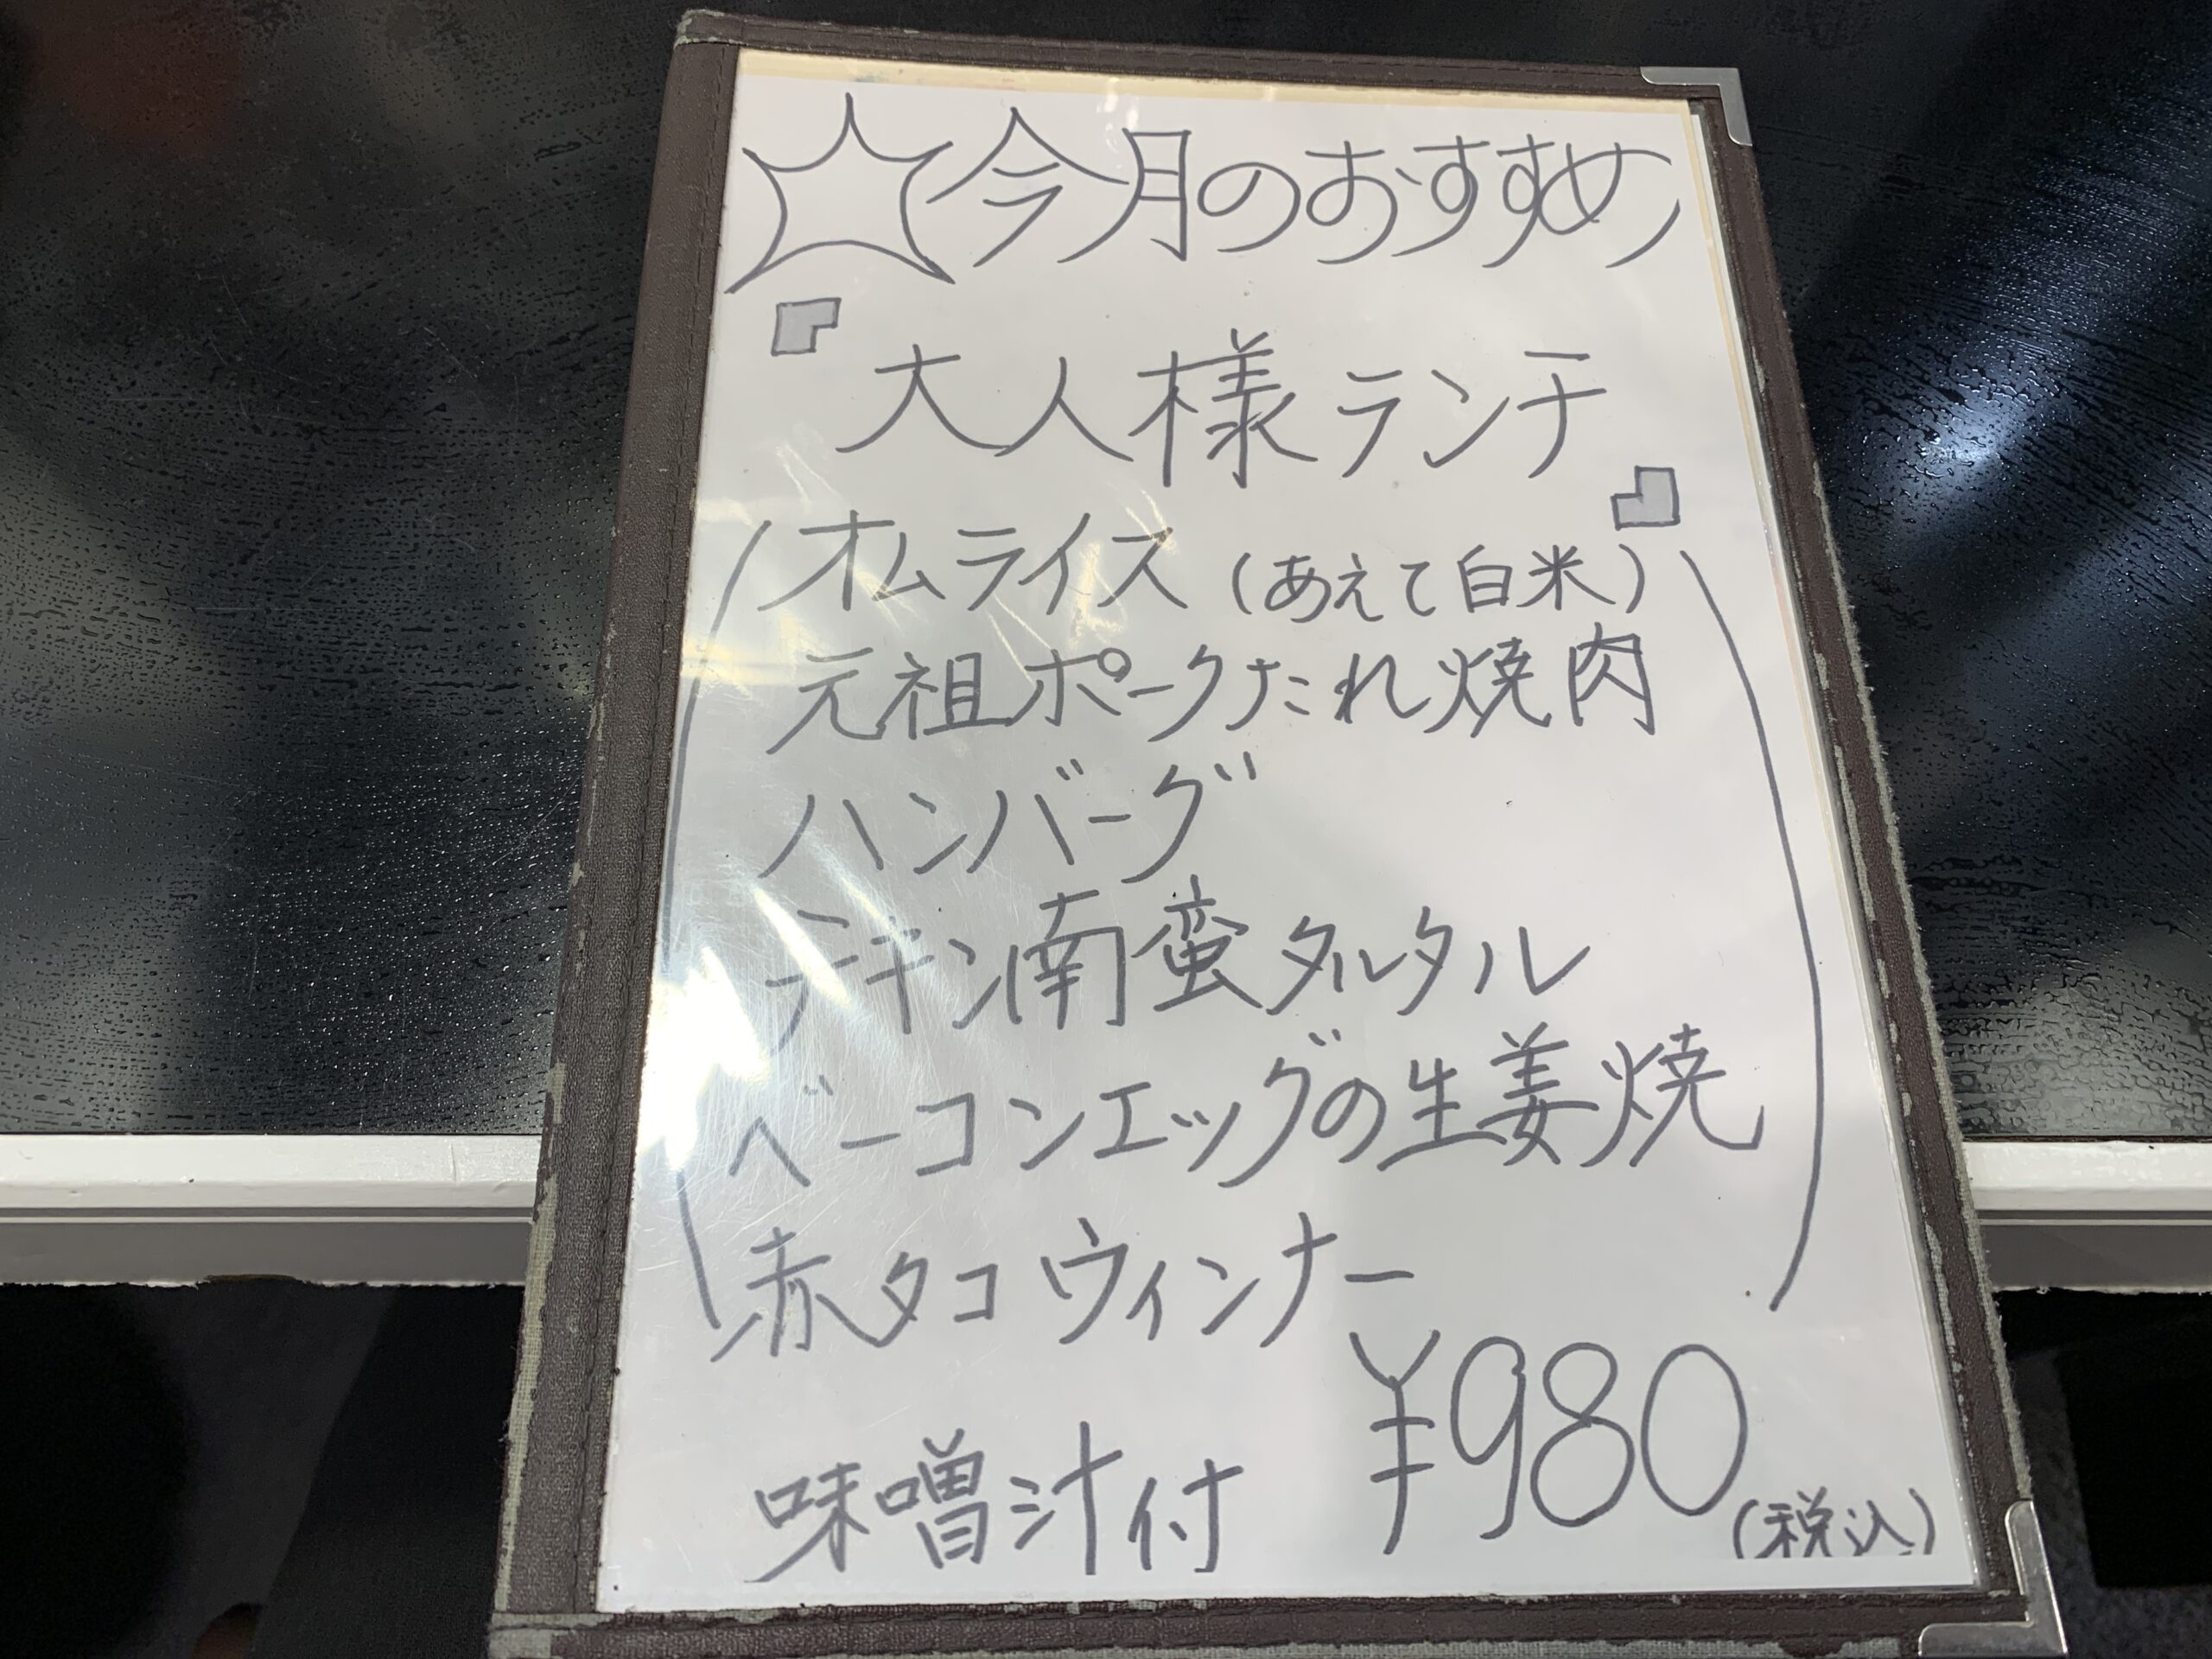 ☆今月のおすすめ
『大人様ランチ』
(オムライス (あえて白米)
元祖ポークたれ焼肉
ハンバーグ
チキン南蛮タルタル
ベーコンエッグの生姜焼
赤タコウィンナー)
¥980 (税込)
味噌汁付